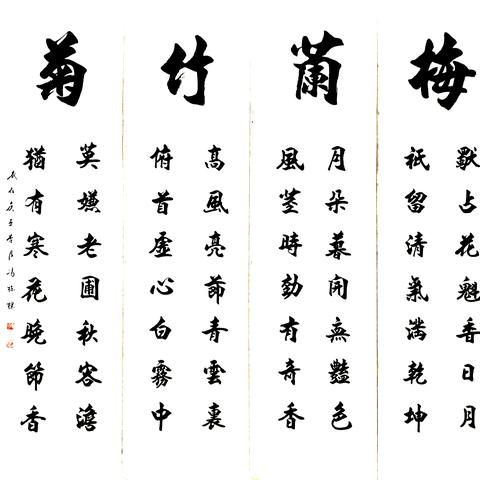 梅
占花魁香日月
祇留清氣滿乾坤
蘭
月朵暮開無豔色
風莖時動有奇香
竹
高風亮節青雲裏
俯首虛心白霧中
菊
莫嫌老圃秋容澹
猶有寒花晚節香